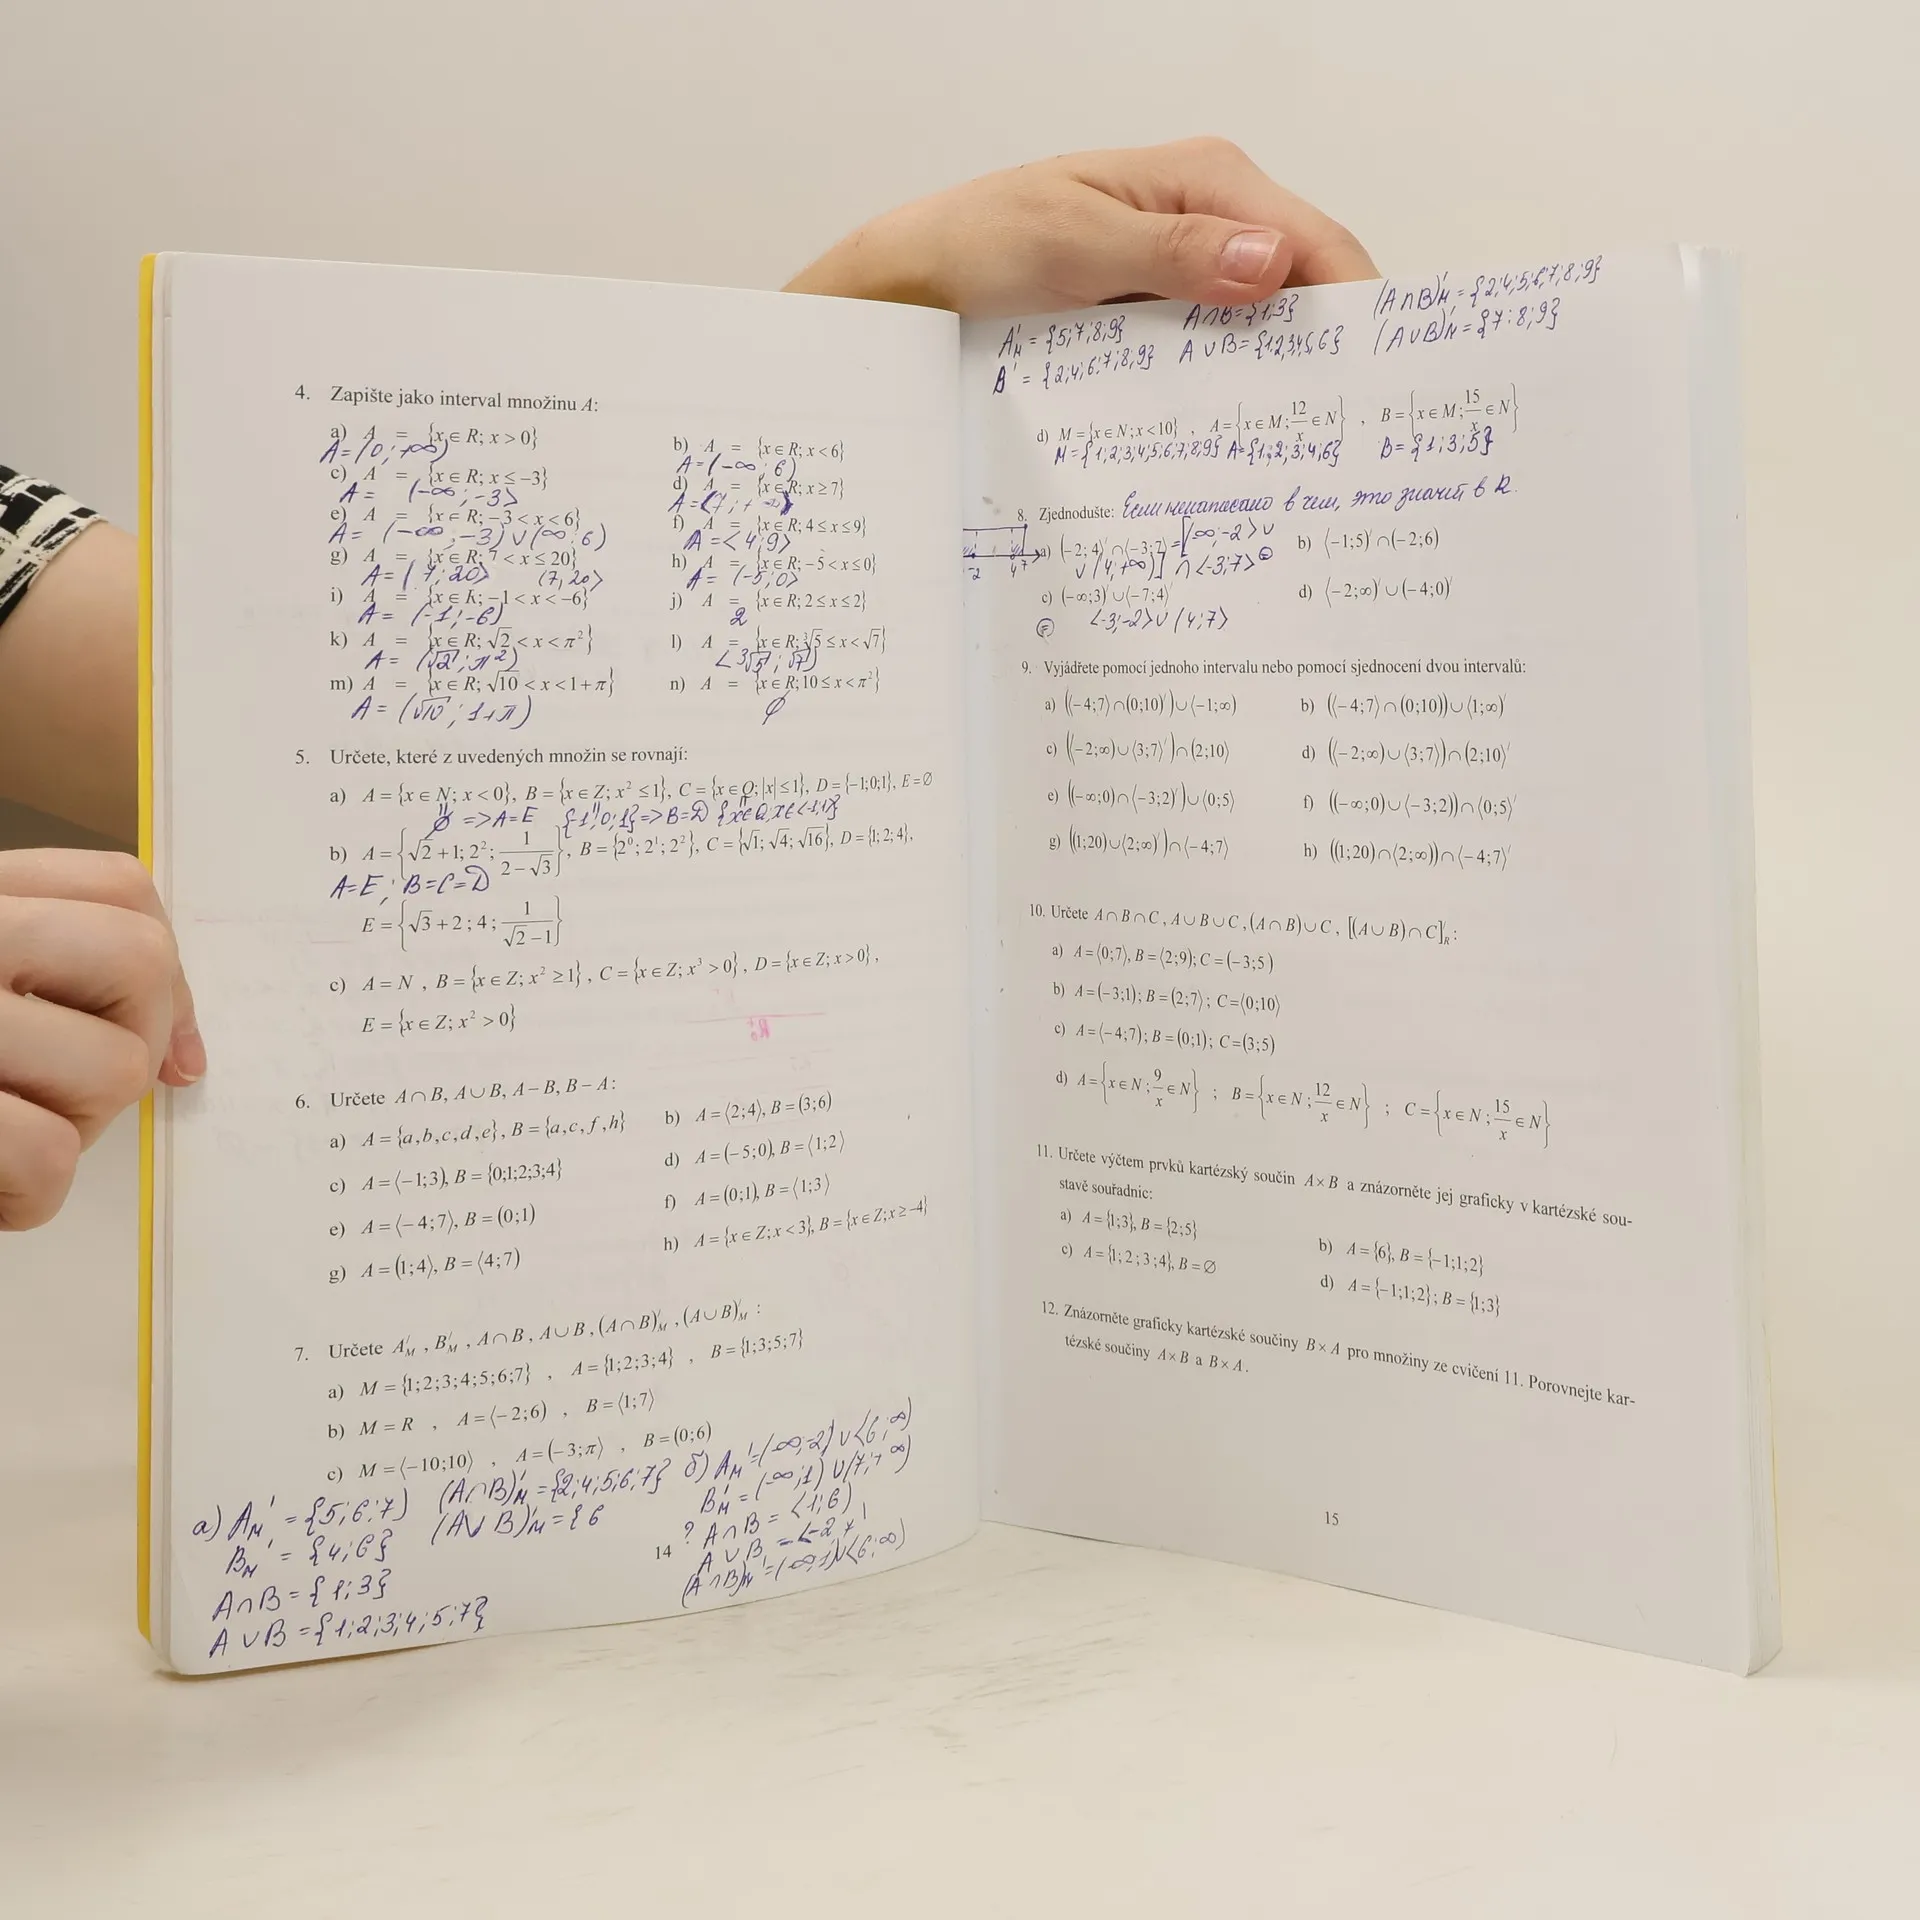 4. Zapište jako interval množinu A:
a) A = {x∈R; x>0}
A=(0;+∞)
b) A = {x∈R; x<6}
A=(-∞;6)
c) A = {x∈R; x≤−3}
A= (-∞;-3>
d) A = {x∈R; x≥7}
A=<7;+∞)
e) A = {x∈R; −3<x<6}
A= (-∞;-3) ∪ (∞;6)
f) A = {x∈R; 4≤x≤9}
A=<4;9>
g) A = {x∈R; 7<x≤20}
A=(7;20> (7;20>
h) A = {x∈R; −5<x≤0}
A= (-5;0>
i) A = {x∈R; −1<x<−6}
A= (-1;-6)
j) A = {x∈R; 2≤x≤2}
2
k) A = {x∈R; √2<x<π²}
A= (√2; π²)
l) A = {x∈R; ³√5≤x<√7}
<³√5; √7)
m) A = {x∈R; √10<x<1+π}
A= (√10; 1+π)
n) A = {x∈R; 10≤x<π²}
∅
5. Určete, které z uvedených množin se rovnají:
a) A={x∈N; x<0}, B={x∈Z; x²≤1}, C={x∈Q; |x|≤1}, D={−1;0;1}, E=∅
∅ =>A=E {-1;0;1}=>B=D {x∈Q;x∈<-1;1>}
b) A={√2+1; 2²; 1/(2−√3)}, B={2⁰; 2¹; 2²}, C={√1; √4; √16}, D={1; 2; 4},
A=E; B=C=D
E={√3+2; 4; 1/(√2−1)}
c) A=N, B={x∈Z; x²≥1}, C={x∈Z; x³>0}, D={x∈Z; x>0},
E={x∈Z; x²>0}
6. Určete A∩B, A∪B, A−B, B−A:
a) A={a,b,c,d,e}, B={a,c,f,h}
b) A=⟨2;4⟩, B=(3;6)
c) A=⟨−1;3), B={0;1;2;3;4}
d) A=(−5;0), B=⟨1;2⟩
e) A=⟨−4;7), B=(0;1)
f) A=(0;1), B=⟨1;3⟩
g) A=(1;4⟩, B=⟨4;7)
h) A={x∈Z; x<3}, B={x∈Z; x≥−4}
7. Určete A′M, B′M, A∩B, A∪B, (A∩B)′M, (A∪B)′M:
a) M={1;2;3;4;5;6;7}, A={1;2;3;4}, B={1;3;5;7}
b) M=R, A=⟨−2;6), B=⟨1;7⟩
c) M=⟨−10;10⟩, A=(−3;π⟩, B=(0;6)
а) A′M={5;6;7)
B′M={4;6}
A∩B={1;3}
A∪B={1;2;3;4;5;7}
(A∩B)′M={2;4;5;6;7}
(A∪B)′M={6
б) A′M=(-∞;-2)∪<6;∞)
B′M=(-∞;1)∪(7;+∞)
? A∩B=<1;6)
A∪B=<-2
(A∩B)′M=(-∞;1)∪<6;∞)
14
A′M={5;7;8;9}
B′={2;4;6;7;8;9}
A∩B={1;3}
A∪B={1;2,3,4,5,6}
(A∩B)′M={2;4;5;6;7;8;9}
(A∪B)′M={7;8;9}
d) M={x∈N; x<10}, A={x∈M; 12/x∈N}, B={x∈M; 15/x∈N}
M={1;2;3;4;5;6;7;8;9} A={1;2;3;4;6} B={1;3;5}
8. Zjednodušte: Если ненаписано в чем, это значит в R.
a) (−2;4)′∩⟨−3;7⟩ =[(-∞;-2>∪
∪(4;+∞)] ∩<-3;7>=
b) ⟨−1;5)′∩(−2;6)
c) (−∞;3)′∪(−7;4)′
d) ⟨−2;∞)′∪(−4;0)′
= <-3;-2>∪(4;7>
-2 4 7
9. Vyjádřete pomocí jednoho intervalu nebo pomocí sjednocení dvou intervalů:
a) (⟨−4;7)∩(0;10)′)∪⟨−1;∞)
b) (⟨−4;7)∩(0;10))∪⟨1;∞)′
c) (⟨−2;∞)∪⟨3;7)′)∩(2;10⟩
d) ((−2;∞)∪⟨3;7))∩(2;10⟩′
e) ((−∞;0)∩⟨−3;2)′)∪⟨0;5)
f) ((−∞;0)∪⟨−3;2))∩⟨0;5)′
g) ((1;20)∪⟨2;∞)′)∩⟨−4;7)
h) ((1;20)∩⟨2;∞))∩⟨−4;7)′
10. Určete A∩B∩C, A∪B∪C, (A∩B)∪C, [(A∪B)∩C]′R:
a) A=⟨0;7), B=⟨2;9); C=(−3;5)
b) A=(−3;1); B=(2;7⟩; C=⟨0;10⟩
c) A=⟨−4;7); B=(0;1); C=(3;5)
d) A={x∈N; 9/x∈N}; B={x∈N; 12/x∈N}; C={x∈N; 15/x∈N}
11. Určete výčtem prvků kartézský součin A×B a znázorněte jej graficky v kartézské sou-
stavě souřadnic:
a) A={1;3}, B={2;5}
b) A={6}, B={−1;1;2}
c) A={1; 2; 3; 4}, B=∅
d) A={−1;1;2}; B={1;3}
12. Znázorněte graficky kartézské součiny B×A pro množiny ze cvičení 11. Porovnejte kar-
tézské součiny A×B a B×A.
15